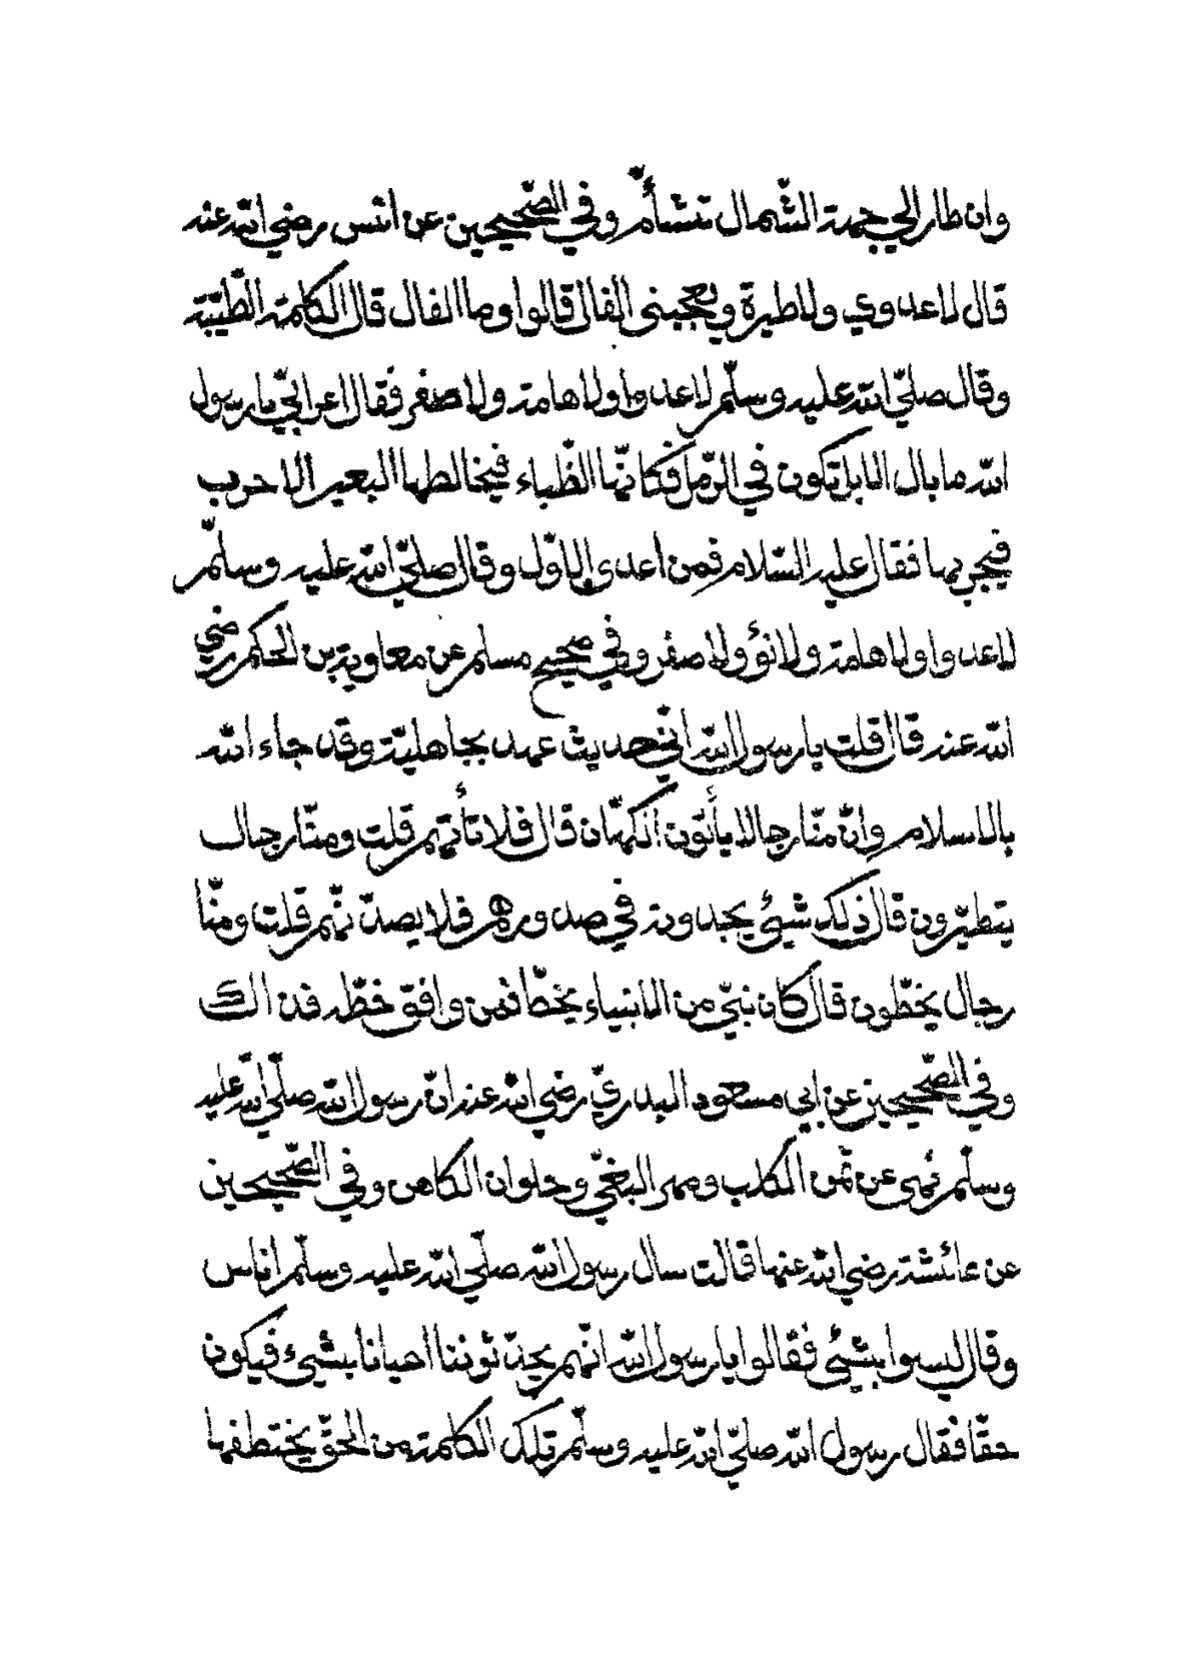 وان طار الي جهة الشّمال تنشأّم وفي الصّحيحين عن انس رضي الله عنه
قال لا عدوي ولا طيرة ويعجبني الفال قالوا وما الفال قال الكلمة الطّيّبة
وقال صلّي الله عليه وسلّم لا عدوا ولا هامة ولا صفر فقال اعرابيّ يا رسول
الله ما بال الابل تكون في الرّمل فكانّها الظّباء فيخالطها البعير الاجرب
فيجربها فقال عليه السّلام فمن اعدي الاوّل وقال صلّي الله عليه وسلّم
لا عدوا ولا هامة ولا نؤ ولا صفر وفي صحيح مسلم عن معاوية بن الحكم رضي
الله عنه قال قلت يا رسول الله انّي حديث عهد بجاهليّة وقد جاء الله
بالاسلام وانّ منّا رجالا يأتون الكهّان قال فلا تأتهم قلت ومنّا رجال
يتطيّرون قال ذلك شيئ يجدونه في صدورهم فلا يصدّنّهم قلت ومنّا
رجال يخطّون قال كان نبيّ من الانبياء يخطّ فمن وافق خطّه فذالك
وفي الصّحيحين عن ابي مسعود البدريّ رضي الله عنه انّ رسول الله صلّي الله عليه
وسلّم نهي عن ثمن الكلب ومهر البغيّ وحلوان الكاهن وفي الصّحيحين
عن عائشة رضي الله عنها قالت سال رسول الله صلّي الله عليه وسلّم اناس
وقال ليسوا بشيئ فقالوا يا رسول الله انّهم يحدّثوننا احيانا بشيئ فيكون
حقّا فقال رسول الله صلّي الله عليه وسلّم تلك الكلمة من الحقّ يختطفها